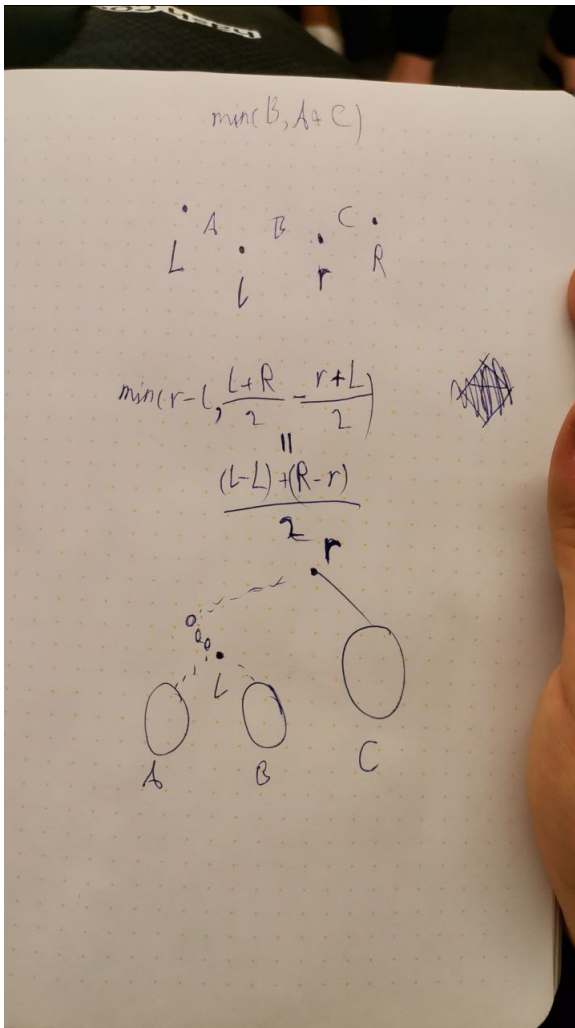 min(B, A+C)
A B C
L l r R
min(r-l, \frac{L+R}{2} - \frac{r+L}{2})
=
\frac{(l-L)+(R-r)}{2}
r
l
A B C